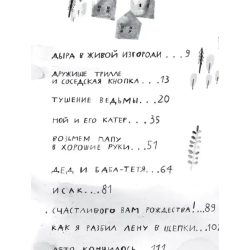 ДЫРА В ЖИВОЙ ИЗГОРОДИ...9
ДРУЖИЩЕ ТРИЛЛЕ
И СОСЕДСКАЯ КНОПКА...13
ТУШЕНИЕ ВЕДЬМЫ...20
НОЙ И ЕГО КАТЕР...35
ВОЗЬМЕМ ПАПУ
В ХОРОШИЕ РУКИ...51
ДЕД И БАБА-ТЁТЯ...64
ИСАК...81
СЧАСТЛИВОГО ВАМ РОЖДЕСТВА!...89
КАК Я РАЗБИЛ ЛЕНУ В ЩЕПКИ...102
ЛЕТО КОНЧИЛОСЬ 111